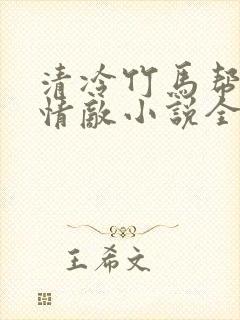 清冷竹馬幫
情敵小說全
王希文